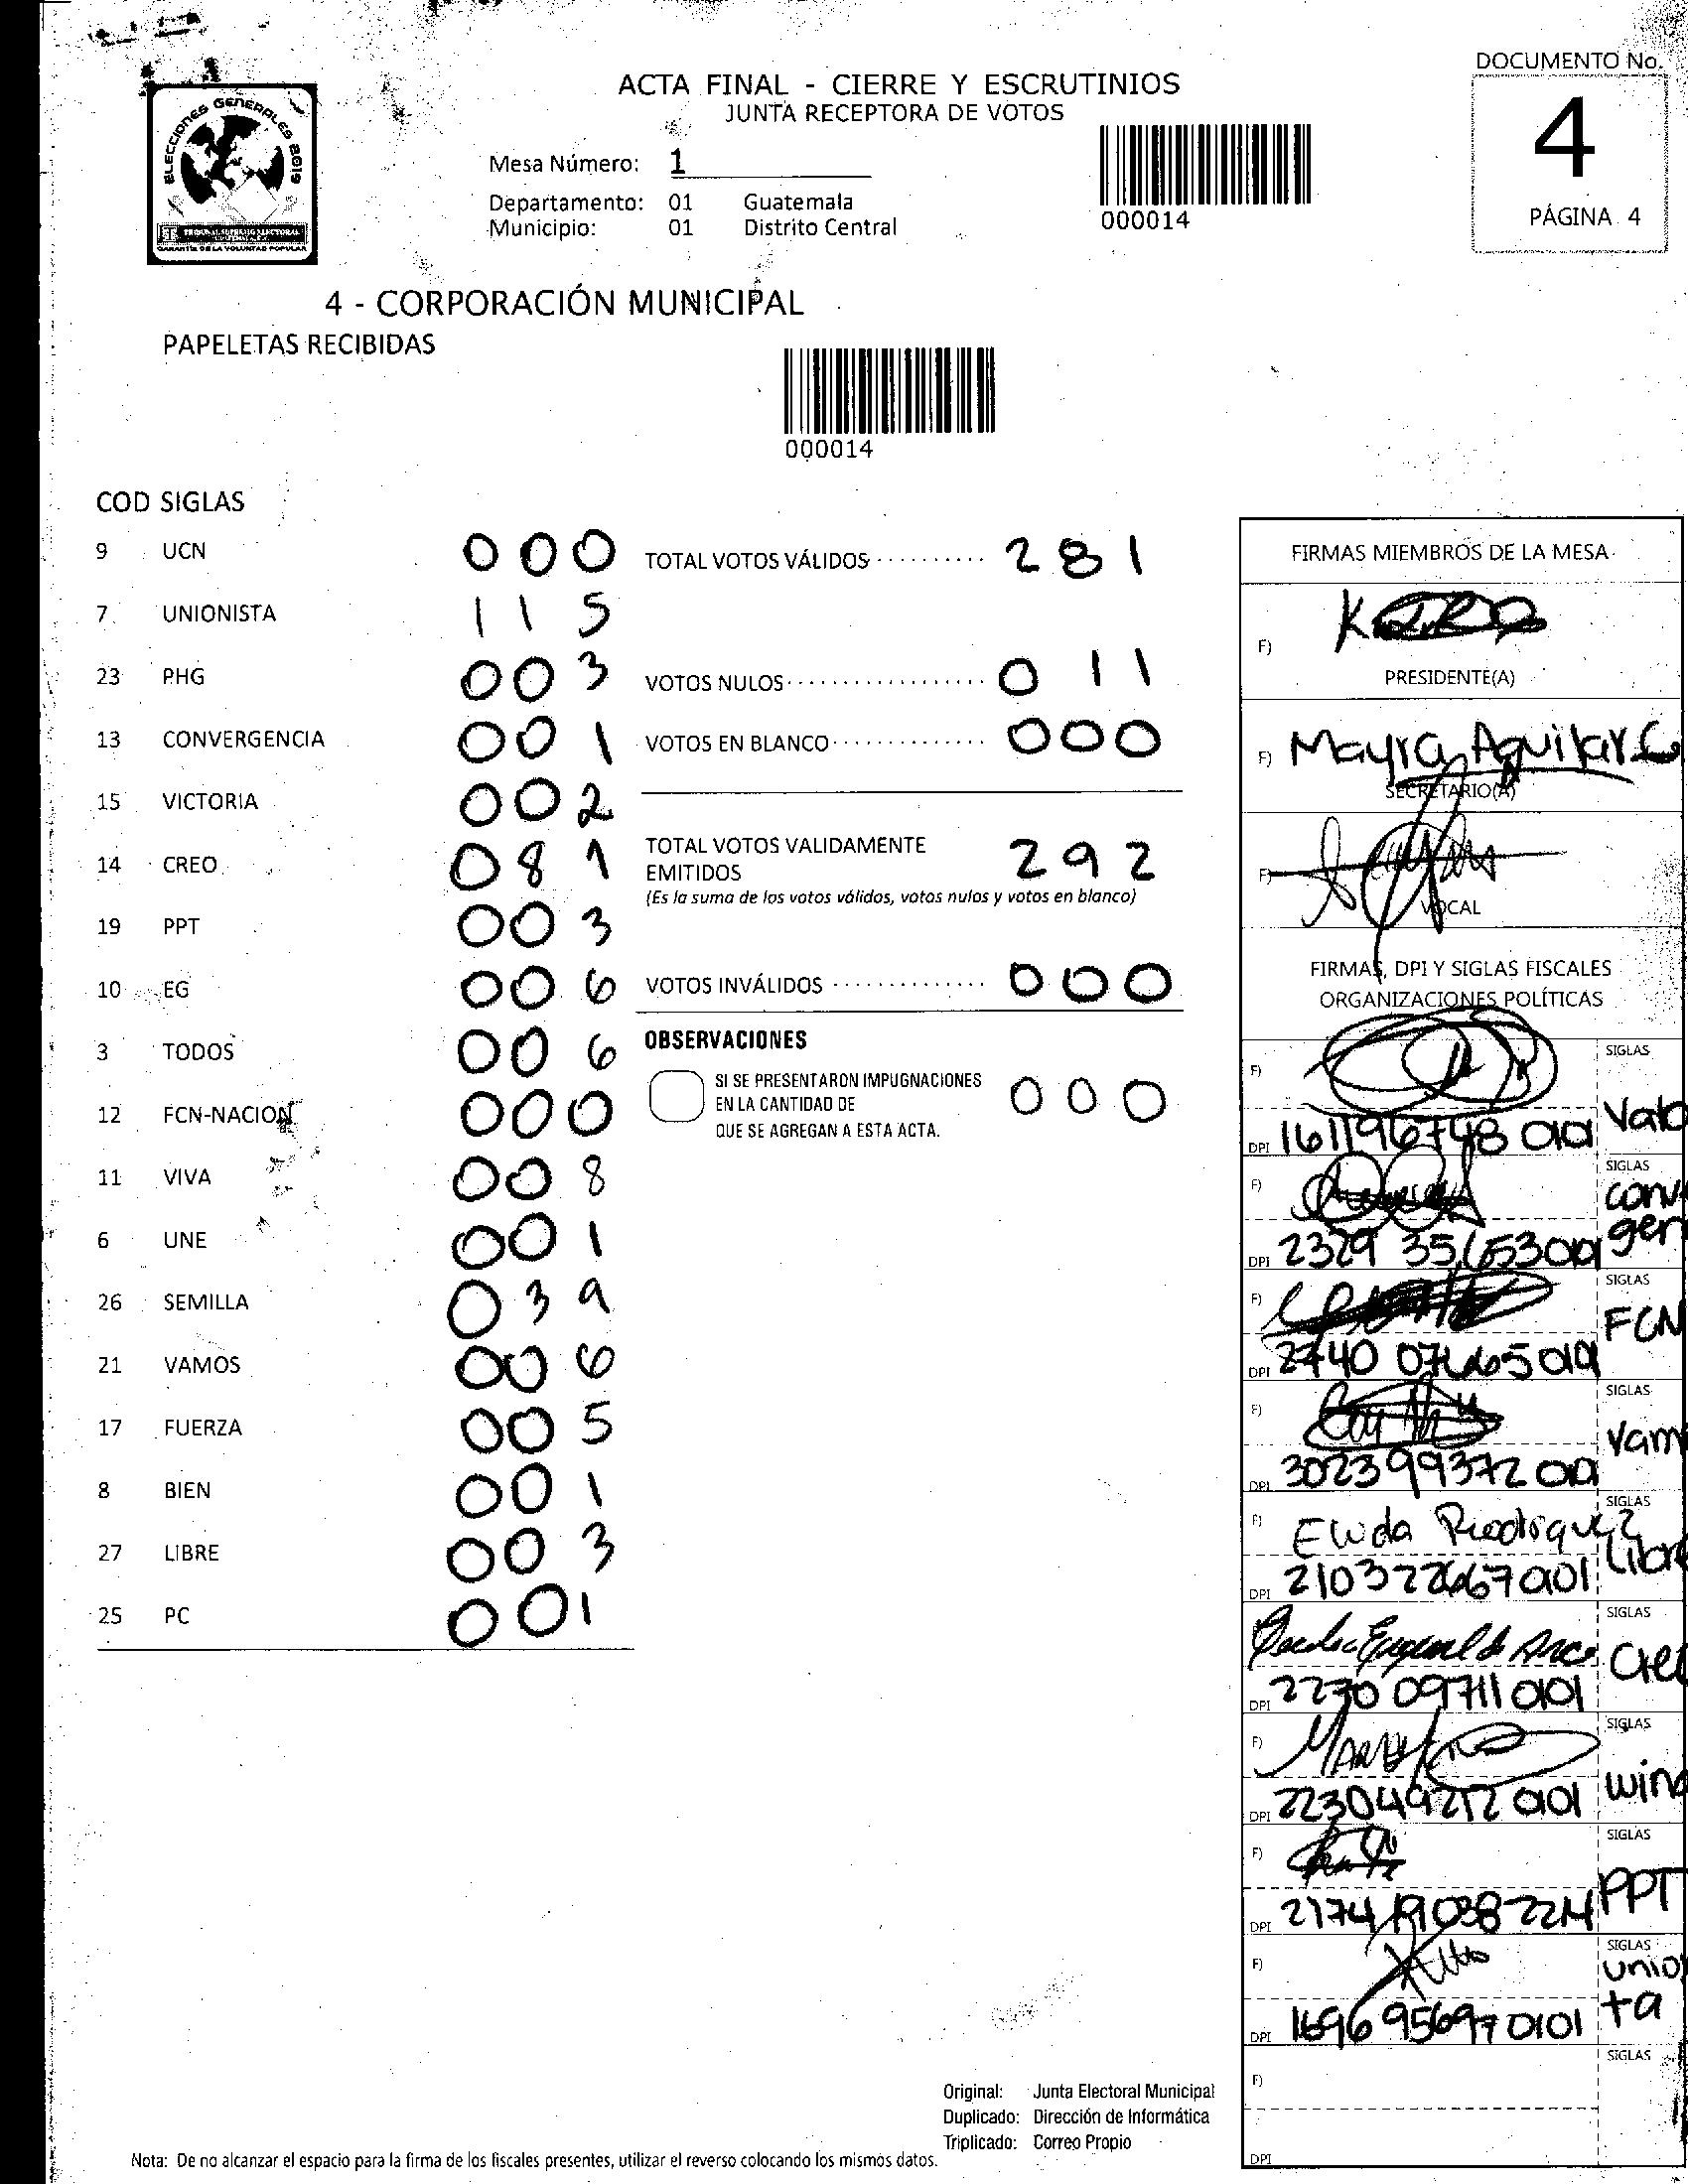 DOCUMENTO No.
4
PÁGINA 4
ELECCIONES GENERALES 2019
GARANTÍA DE LA VOLUNTAD POPULAR
ACTA FINAL - CIERRE Y ESCRUTINIOS
JUNTA RECEPTORA DE VOTOS
Mesa Número: 1
Departamento: 01 Guatemala
Municipio: 01 Distrito Central
000014
4 - CORPORACIÓN MUNICIPAL
PAPELETAS RECIBIDAS
000014
COD SIGLAS
9 UCN 000
7 UNIONISTA 115
23 PHG 003
13 CONVERGENCIA 001
15 VICTORIA 002
14 CREO 081
19 PPT 003
10 EG 006
3 TODOS 006
12 FCN-NACION 000
11 VIVA 008
6 UNE 001
26 SEMILLA 039
21 VAMOS 006
17 FUERZA 005
8 BIEN 001
27 LIBRE 003
25 PC 001
TOTAL VOTOS VÁLIDOS 281
VOTOS NULOS 011
VOTOS EN BLANCO 000
TOTAL VOTOS VALIDAMENTE
EMITIDOS 292
(Es la suma de los votos válidos, votos nulos y votos en blanco)
VOTOS INVÁLIDOS 000
OBSERVACIONES
SI SE PRESENTARON IMPUGNACIONES
EN LA CANTIDAD DE 000
QUE SE AGREGAN A ESTA ACTA.
FIRMAS MIEMBROS DE LA MESA
F)
PRESIDENTE(A)
F) Mayra Aguilar C
SECRETARIO(A)
F)
VOCAL
FIRMAS, DPI Y SIGLAS FISCALES
ORGANIZACIONES POLÍTICAS
F) SIGLAS
DPI 161196748 0101 Valo
F) SIGLAS
conv
gen
DPI
F) SIGLAS
FCN
DPI
F) SIGLAS
Vam
DPI 302399372 0101
F) SIGLAS
Libre
DPI 210322667 0101
F) SIGLAS
Creo
DPI 2230 09711 0101
F) SIGLAS
Wins
DPI 223049272 0101
F) SIGLAS
PPT
DPI
F) SIGLAS
unio
ta
DPI 1696 95697 0101
F) SIGLAS
DPI
Original: Junta Electoral Municipal
Duplicado: Dirección de Informática
Triplicado: Correo Propio
Nota: De no alcanzar el espacio para la firma de los fiscales presentes, utilizar el reverso colocando los mismos datos.